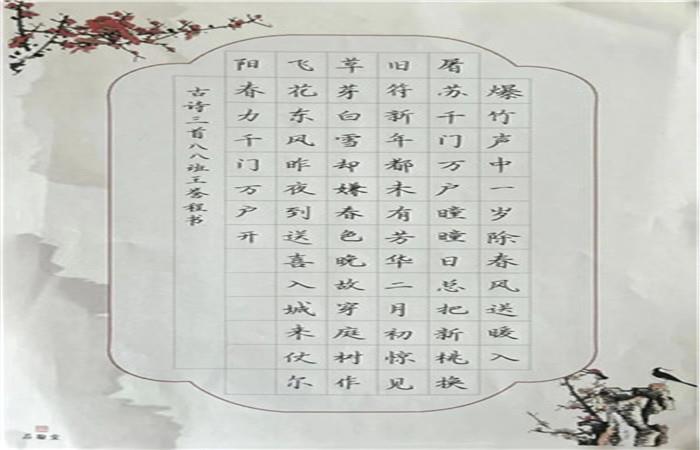 爆竹声中一岁除春风送暖入
屠苏千门万户曈曈日总把新桃换
旧符新年都未有芳华二月初惊见
草芽白雪却嫌春色晚故穿庭树作
飞花东风昨夜到送喜入城来仗尔
阳春力千门万户开
古诗三首八八班王荟程书